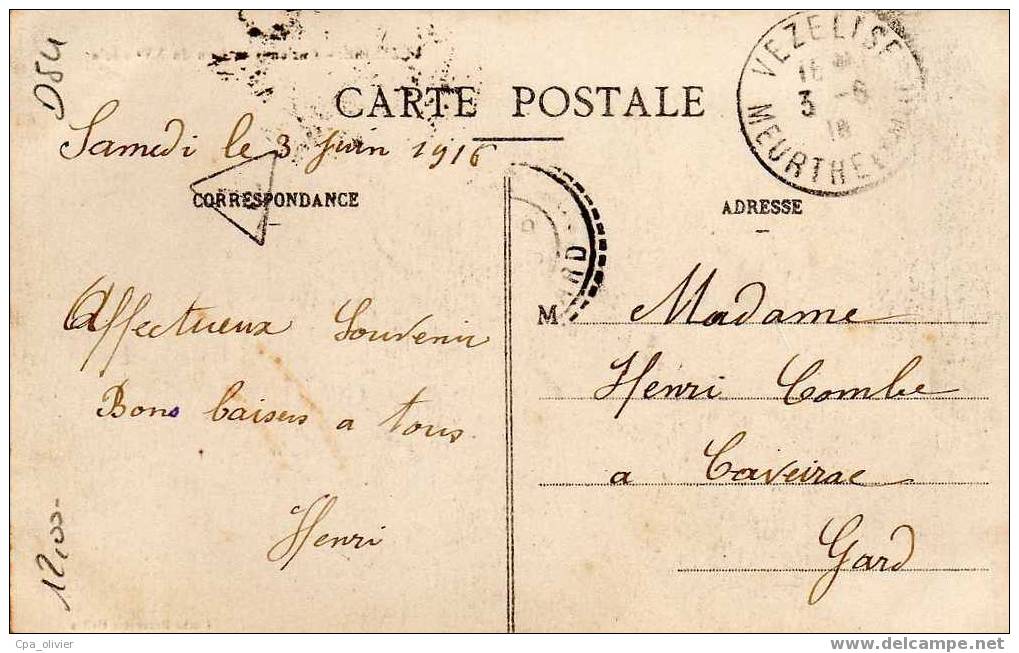 D54
CARTE POSTALE
Samedi le 3 Juin 1916
CORRESPONDANCE
Affectueux Souvenir
Bons baisers a tous
Henri
12,00-
VEZELISE
3 -6
16
MEURTHE
ARD
ADRESSE
M Madame
Henri Combe
a Caveirac
Gard
Cpa_olivier
www.delcampe.net